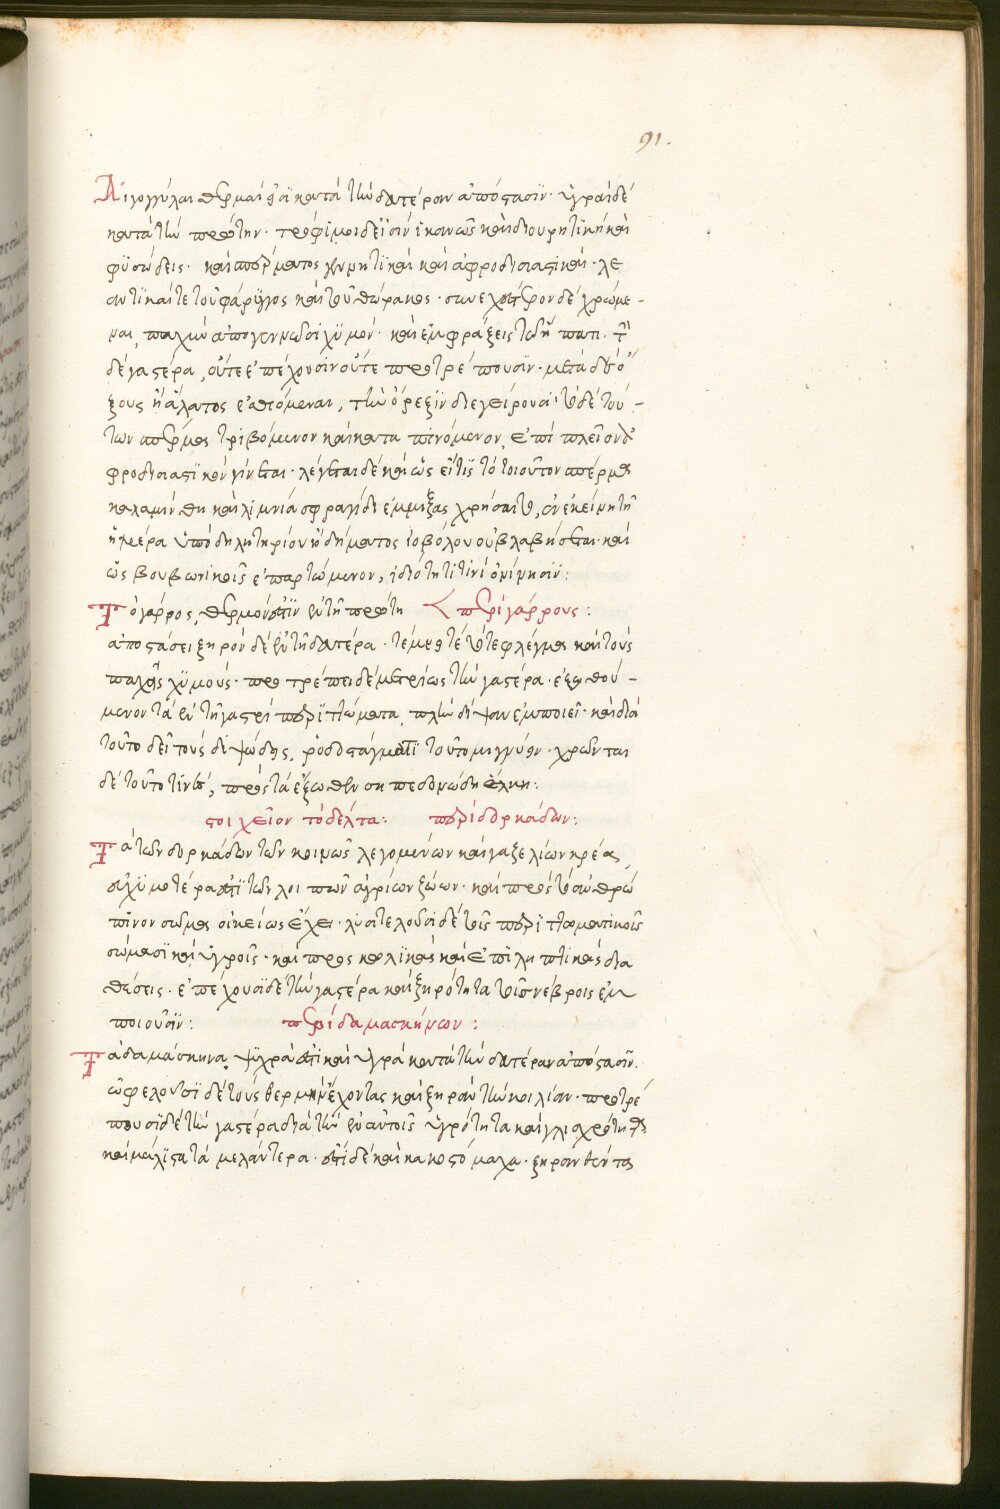 91.
Αἱ γογγύλαι θερμαί εἰσι κατὰ τὴν δευτέραν ἀπόστασιν· ὑγραὶ δὲ
κατὰ τὴν πρώτην· τρόφιμοι δὲ εἰσὶν ἱκανῶς καὶ διουρητικαὶ καὶ
φυσώδεις· καὶ σπέρματος γεννητικαὶ καὶ ἀφροδισιαστικαί· λε
αντικαί τε τοῦ φάρυγγος καὶ τοῦ θώρακος· συνεχέστερον δὲ χρώμε-
ναι, παχὺν ἀπογεννῶσι χυμόν· καὶ ἐμφράξεις τῶ ἥπατι· τὴν
δὲ γαστέρα, οὔτε ἐπέχουσιν οὔτε προτρέπουσιν· μετὰ δὲ ὄ
ξους ἢ ἅλατος ἐσθιόμεναι, τὴν ὄρεξιν διεγείρουσι· τὸ δὲ τού-
των σπέρμα τριβόμενον καὶ καταπινόμενον, ἐπὶ πλεῖον ἀ
φροδισιαστικὸν γίνεται· λέγεται δὲ καὶ ὡς εἴ τις τὸ τοιοῦτον σπέρμα
καλαμίνθη καὶ λιμνία σφραγίδι ἐμμίξας χρήσαιτο, ἐν ἐκείνη τῇ
ἡμέρα ὑπὸ δηλητηρίου ἢ δήγματος ἰοβόλου οὐ βλαβήσεται· καὶ
ὡς βουβωνικοῖς ἐπαρτώμενον, ἰδιότητι τινὶ ὀνίνησιν:
Ὁ γάρρος, θερμὸν ἐστὶν ἐν τῇ πρώτη περὶ γάρρους:
ἀποστάσει ξηρὸν δὲ ἐν τῇ δευτέρα· τέμνει τέ τό τε φλέγμα καὶ τοὺς
παχεῖς χυμούς· προτρέπει δὲ μετρίως τὴν γαστέρα· ἐξωθού-
μενον τὰ ἐν τῇ γαστρὶ περιττώματα, πολὺ δίψαν ἐμποιεῖ· καὶ διὰ
τοῦτο δεῖ τοὺς διψώδεις, ῥοδοστάγματι τοῦτο μιγνύειν· χρῶνται
δὲ τοῦτο τινές, πρὸς τὰ ἔξωθεν σηπεδονώδη ἕλκη:
στοιχεῖον τὸ δέλτα: περὶ δορκάδων:
Τὰ τῶν δορκάδων τῶν κοινῶς λεγομένων καὶ γαζελίων κρέα,
εὐχυμότερα ἐστὶ τῶν λοιπῶν ἀγρίων ζώων· καὶ πρὸς τὸ ἀνθρώ
πινον σῶμα οἰκείως ἔχει· λυσιτελοῦσι δὲ τοῖς περιττωματικοῖς
σώμασι καὶ ὑγροῖς· καὶ πρὸς κωλικὰς καὶ ἐπιληπτικὰς δια
θέσεις· ἐπέχουσι δὲ τὴν γαστέρα καὶ ξηρότητα τοῖς νεύροις ἐμ
ποιοῦσιν: περὶ δαμασκήνων:
Τὰ δαμάσκηνα ψυχρὰ ἐστὶ καὶ ὑγρὰ κατὰ τὴν δευτέραν ἀπόστασιν·
ὠφελοῦσι δὲ τοὺς θερμὴν ἔχοντας καὶ ξηρὰν τὴν κοιλίαν· προτρέ
πουσι δὲ τὴν γαστέρα διὰ τὴν ἐν αὐτοῖς ὑγρότητα καὶ γλισχρότητα
καὶ μάλιστα τὰ μελάντερα· ἐστὶ δὲ καὶ κακοστόμαχα· ξηρανθέντα